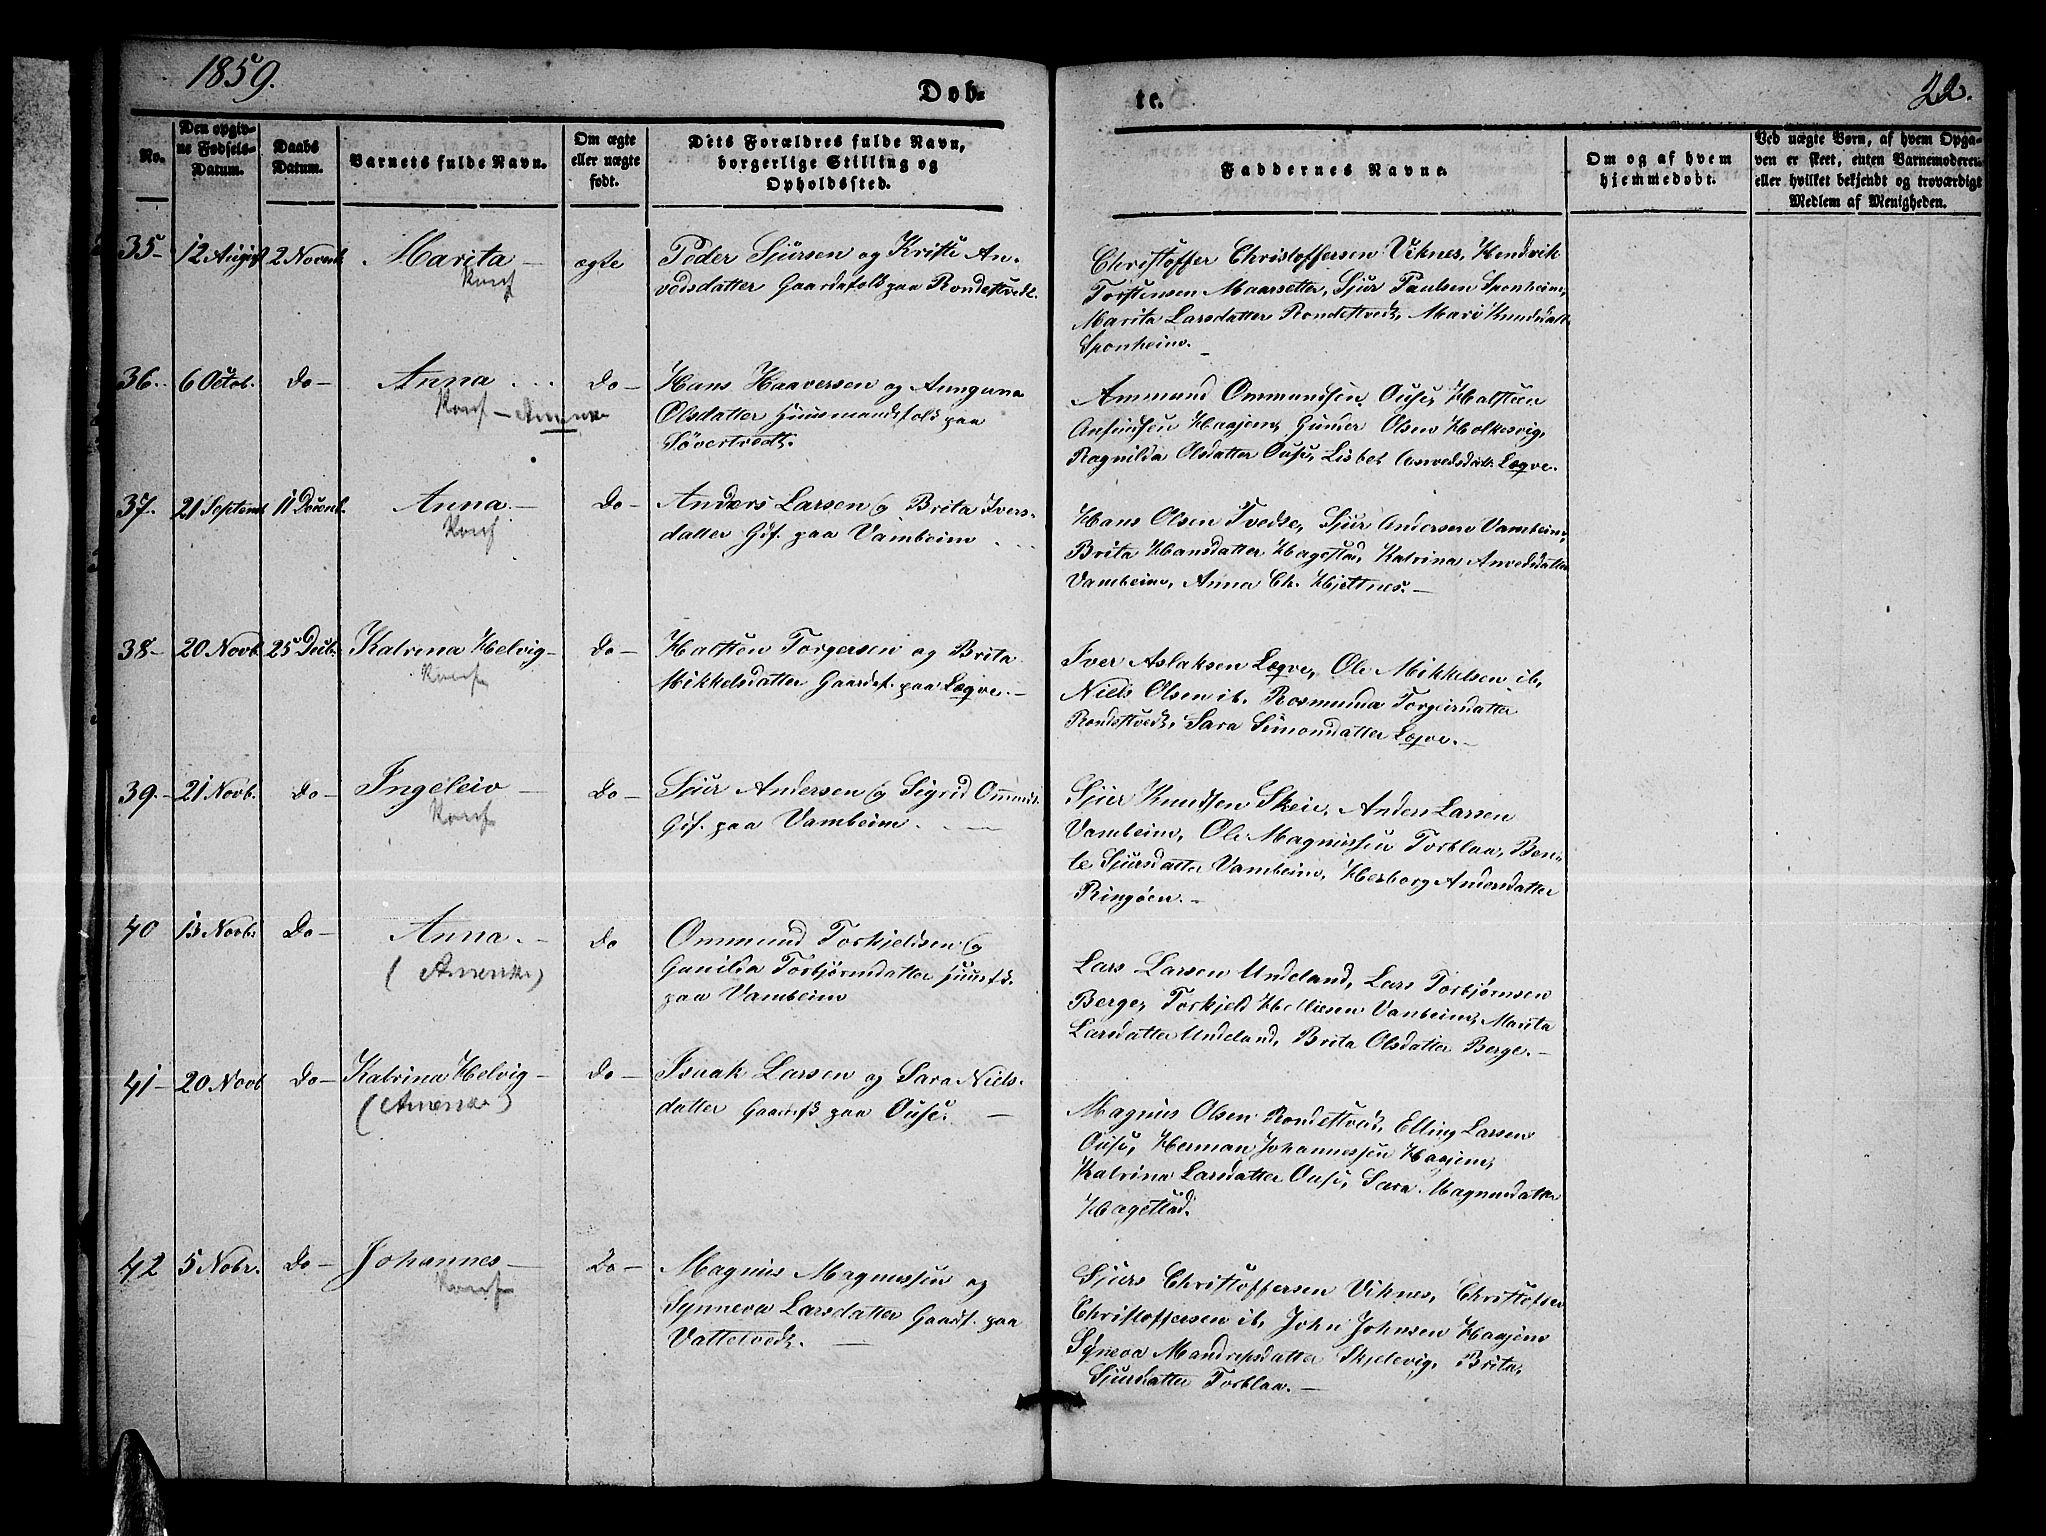 1859.
Døb-
te.
22.
No.
Den opgiv-
ne Fødsels-
Datum.
Daabs
Datum.
Barnets fulde Navn.
Om ægte
eller uægte
født.
Dets Forældres fulde Navn,
borgerlige Stilling og
Opholdssted.
Faddernes Navne.
Om og af hvem
hjemmedøbt.
Ved uægte Børn, af hvem Opga-
ven er skeet, enten Barnemoderen
eller hvilket bekjendt og troværdigt
Medlem af Menigheden.
35- 12 August 2 Novemb. Marita - ægte Peder Sjursen og Kristi An-
Konf
vedsdatter Gaardsfolk paa Rondestvedt.
Christoffer Christoffersen Viknes, Hendrik
Torstensen Maarsetter, Sjur Paulsen Sponheim,
Marita Larsdatter Rondestvedt, Mari Knudsdatt.
Sponheim. -
36. 6 Octob. do - Anna ... do - Hans Haaversen og Anngunna
Konf -
Olsdatter Huusmandsfolk paa
Søvertvedt.
Ammund Ommundsen Ouse, Halsteen
Anfindsen Haajem, Gunder Olsen Holkesvig,
Ragnilda Olsdatter Ouse, Lisbet Anvedsdatt. Legve.
37. 21 Septemb. 11 Decemb. Anna - Do - Anders Larsen og Brita Ivers-
Konf
datter Gf. paa Vambeim ...
Hans Olsen Tvedte, Sjur Andersen Vambeim,
Brita Hansdatter Hagestad, Katrina Anvedsdatter
Vambeim, Anna Ch. Hjeltnes. -
38- 20 Novb. 25 Decb. Katrina Helvig - do - Halsten Torgersen og Brita
Konf
Mikkelsdatter Gaardsf. paa Legve. -
Iver Aslaksen Legve, Ole Mikkelsen ib,
Niels Olsen ib, Rosmunda Torgeirsdatter
Rondestvedt, Sara Simonsdatter Legve. -
39.- 21 Novb. do - Ingeleiv - do - Sjur Andersen og Sigrid Ommunds.
Konf
Gf. paa Vambeim. -
Sjur Knudsen Skeie, Anders Larsen
Vambeim, Ole Magnussen Torblaa, Ben-
te Sjursdatter Vambeim, Herborg Andersdatter
Ringøen. -
40 13 Novb. Do - Anna. - do Ommund Torkjeldsen og
(Amerika)
Gunilda Torbjørnsdatter Huusfk.
paa Vambeim
Lars Larsen Undeland, Lars Torbjørnsen
Berge, Torkjeld Hellesen Vambeim, Marita
Larsdatter Undeland, Brita Olsdatter Berge. -
41- 20 Novb do - Katrina Helvig - do - Isaak Larsen og Sara Niels-
(Amerika)
datter Gaardsfk paa Ouse. -
Magnus Olsen Rondestvedt, Elling Larsen
Ouse, Herman Johannessen Haajem,
Katrina Larsdatter Ouse, Sara Magnusdatter
Hagestad.
42 5 Nobr. Do - Johannes - Do - Magnus Magnussen og
Konf
Synneva Larsdatter Gaardf. paa
Vattetvedt. -
Sjurs Christoffersen Viknes, Christoffer
Christoffersen ib, John Johnsen Haajem
Syneva Mandrupsdatter Skjelevig, Brita
Sjursdatter Torblaa. -